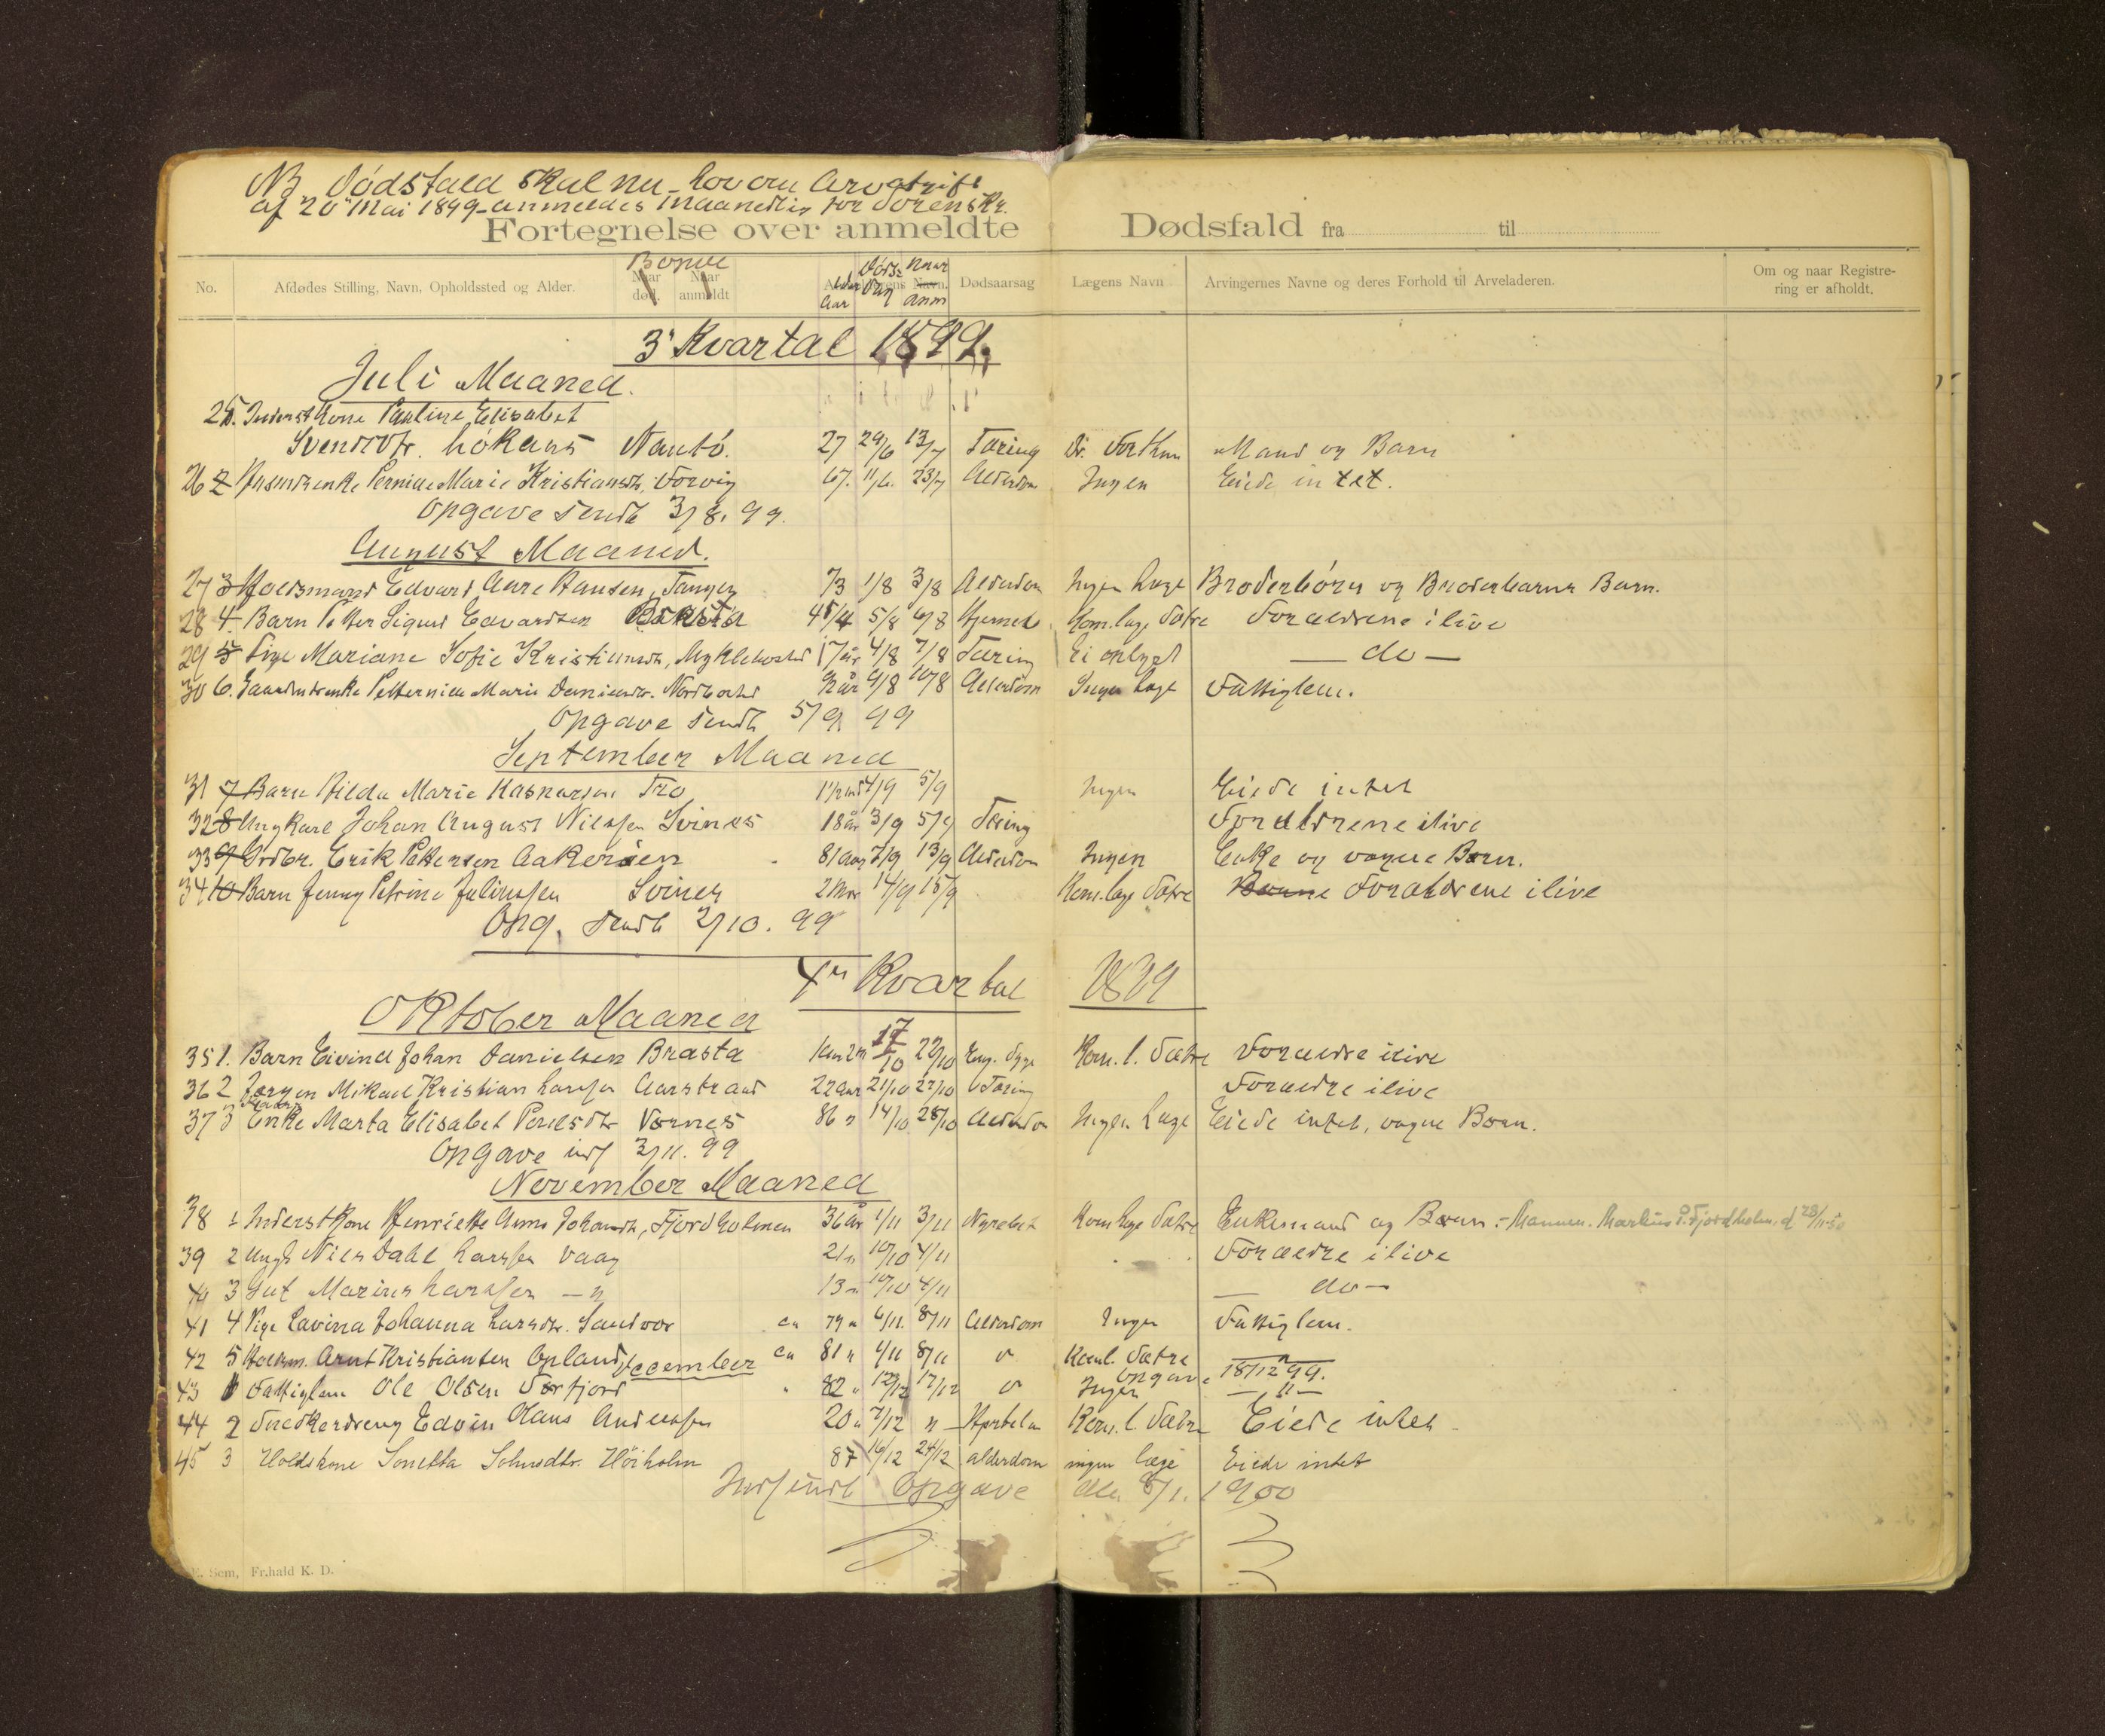 NB Dødsfald skal nu - Lov om Arvafgift
af 20 Mai 1899 - anmeldes maanedlig for Sorenskr.
Fortegnelse over anmeldte Dødsfald fra til
No. Afdødes Stilling, Navn, Opholdssted og Alder. Naar død. Naar anmeldt Navn. Dødsaarsag Lægens Navn Arvingernes Navne og deres Forhold til Arveladeren. Om og naar Registrering er afholdt.
Bopæl Alder Aar Døds Dag Naar anm
3' Kvartal 1899.
Juli Maaned.
25. Inderst Kone Pauline Elisabet
Svendsdtr. Løkaas Nautø. 27 29/6 13/7 Tæring Dr. Mand og Barn
26 2 Pernille Marie Kristiansdtr, Forvig 67. 11/6. 23/7 Alderdom Ingen Eiede intet.
Opgave sendt 3/8. 99.
August Maaned.
27 3 Holdsmand Edvard Aare Hansen, Tangen 73 1/8 3/8 Alderdom Ingen Læge Broderbørn og Broderbarns Barn.
28 4. Barn Petter Sigurd Edvardsen 5/8 6/8 Kom.læge Sætre Forældrene ilive
29 5 Pige Mariane Sofie Kristiansdtr, Myklebostad 17 år 4/8 7/8 Tæring Ei oplyst — do —
30 6. Gaardmdsenke Petternille Marie Danielsdtr. Nordbostad år 9/8 10/8 Alderdom Ingen Læge Fattiglem.
Opgave sendt 5/9 99
September Maaned
31 7 Barn Hilda Marie Kaspersen Tro 4/9 5/9 Ingen Eiede intet
32 8 Ungkarl Johan August Nilssen Svines 18 år 3/9 5/9 Tæring Forældrene ilive
33 9 Grdbr. Erik Pettersen Aakerøen 81 Aar 7/9 13/9 Alderdom Ingen Enke og voxne Børn.
34 10 Barn Jenny Petrine Juliussen Svines 2 Mdr 14/9 15/9 Kom.læge Sætre Forældrene ilive
Opg. sendt 2/10. 99
4de Kvartal 1899
Oktober Maaned
35 1. Barn Eivind Johan Danielsen Brasta 17/10 22/10 Kom. l. Sætre Forældre ilive
36 2 Jørgen Mikael Kristian Larssen Aarstrand 22 aar 21/10 27/10 Tæring Forældre ilive
37 3 Enke Marta Elisabet Vornes 86 " 14/10 28/10 Alderdom Ingen Læge Eiede intet, voxne Børn.
Opgave inds 3/11. 99
November Maaned
38 1 Inderst Kone Henriette Anna Johansdtr, Fjordholmen 36 År 1/11 3/11 Kom læge Sætre Enkemand og Børn. - Mannen. Markus P. Fjordholm. d 28/11-50
39 2 Ungk Nils Dahl Larssen Vaag 21 " 10/10 4/11 Forældre ilive
40 3 Gut Marius Larssen — " 13 " 10/10 4/11 — do —
41 4 Pige Lavina Johanna Larsdtr. Sandvor ca 79 " 6/11. 8/11 Alderdom Ingen Fattiglem.
42 5 Holdsm. Arnt Kristiansen Opland ca 81 " 4/11 8/11 " Koml. Sætre
December Opgave 18/12 99.
43 1 Fattiglem Ole Olsen Sørfjord 82 " 12/12 17/12 " Ingen — " —
44 2 Snedkerdreng Edvin Olaus Anderssen 20 " 7/12 " Kom. l. Sætre Eiede intet
45 3 Holdskone Sonetta Johnsdtr. Høiholm 87 16/12 24/12 alderdom ingen læge Eiede intet
Indsendt Opgave den 8/1. 1900
E. Sem, Fr.hald K. D.